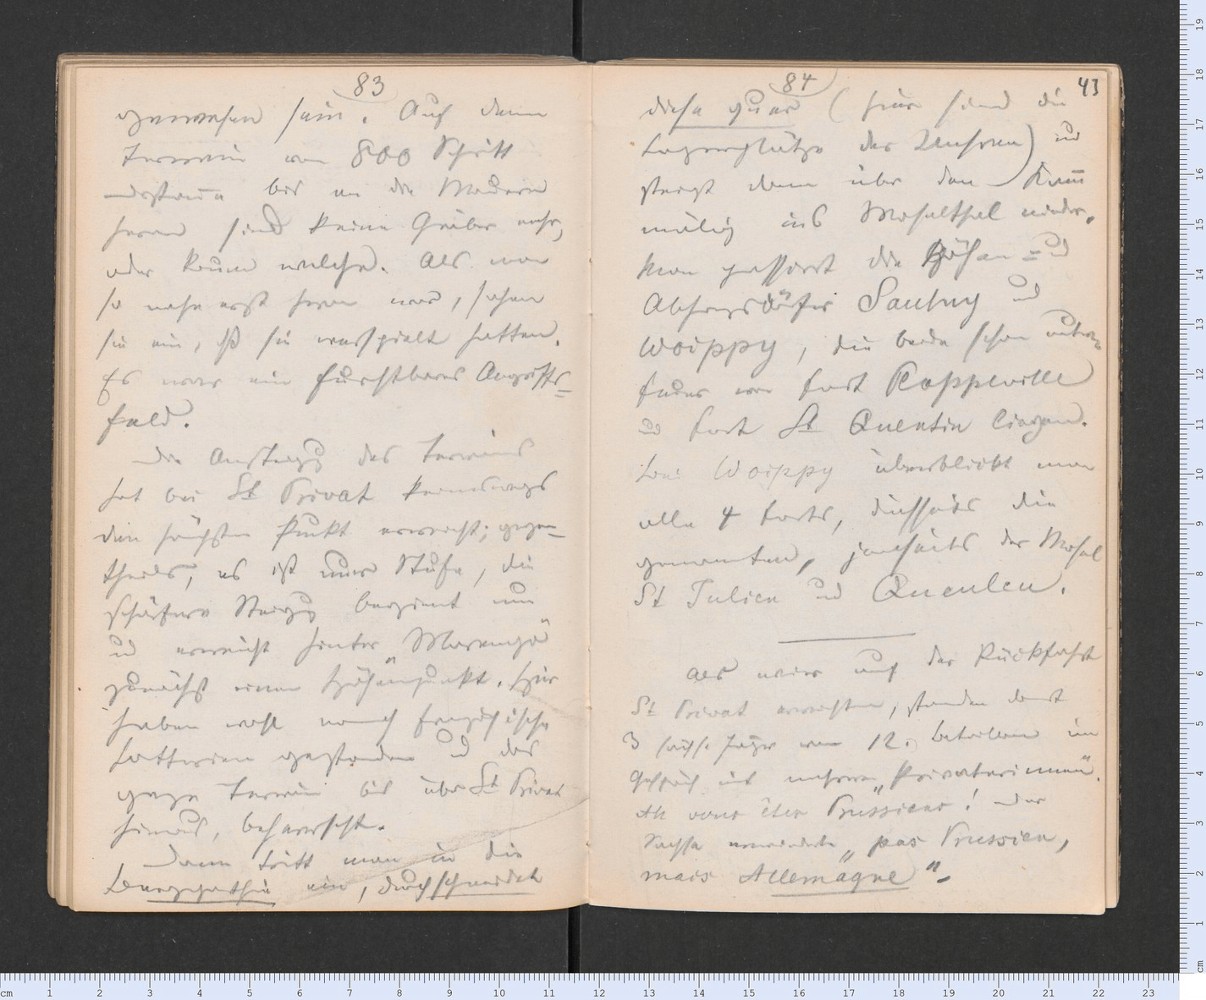 83
gewesen sein. Auf dem
Terrain von 800 Schritt
bis an die Mauern
heran sind keine Gräber mehr,
oder kaum welche. Als man
so nahe erst heran war, sahen
sie ein, daß sie verspielt hatten.
Es war ein furchtbares Angriffs=
feld.
Die Ansteigg des Terrains
hat bei St Privat keineswegs
den höchsten Punkt erreicht; gegen=
theils, es ist nur Stufe, die
schärfere Steigg beginnt nun
und erreicht hinter
zunächst einen Höhenpunkt. Hier
haben wohl noch französische
Batterien gestanden und das
ganze Terrain bis über St Privat
hinaus, beherrscht.
Dann tritt man in die
ein, durchschneidet
84
43
diese quer (hier sind die
Lagerplätze der) und
steigt dann über den Kamm
mälig ins Moselthal nieder.
Man passirt die Höhen= und
Abhangsdörfer Saulny und
Woippy, die beide schon unterm
Feuer von Fort Plappeville
und Fort St Quentin liegen.
Bei Woippy überblickt man
alle 4 Forts, diesseits die
genannten, jenseits der Mosel
St Julien und Queuleu.
Als wir auf der Rückfahrt
St Privat erreichten, standen dort
3 sächs. Jäger vom 12. Bataillon im
Gespräch mit mehren „Privaterinnen".
Ah vous êtes Prussiens! Der
Sachse erwiederte „pas Prussien,
mais Allemagne".